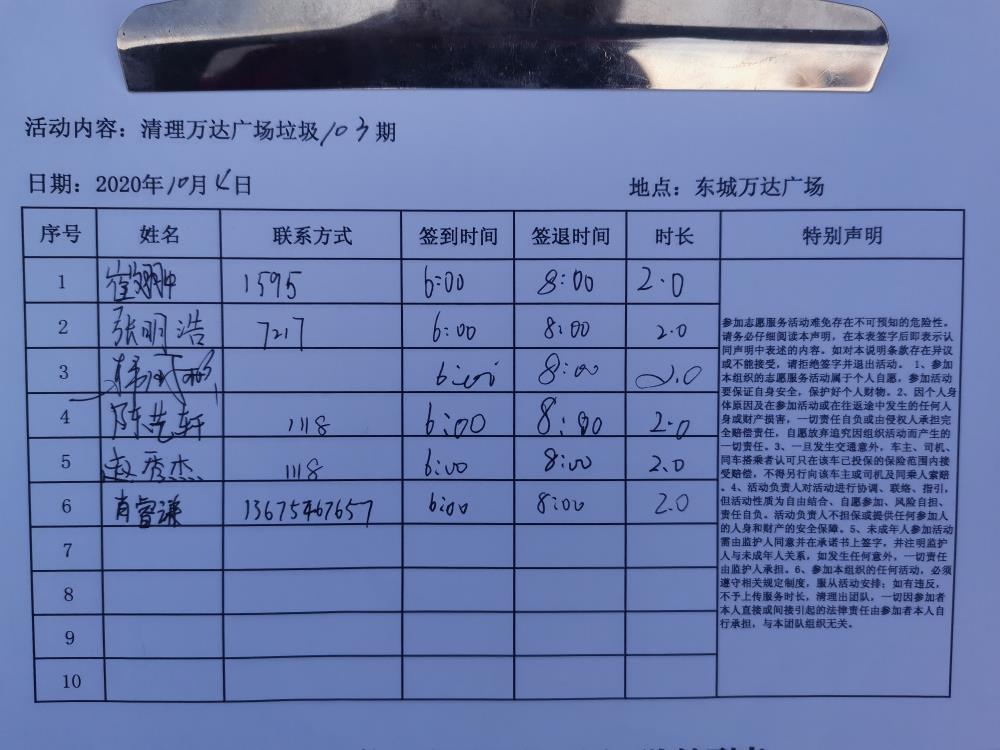 活动内容：清理万达广场垃圾103期
日期：2020年10月4日 地点：东城万达广场
序号 姓名 联系方式 签到时间 签退时间 时长 特别声明
1 崔翙翀 1595 6:00 8:00 2.0
2 张明浩 7217 6:00 8:00 2.0
3 杨 6:00 8:00 2.0
4 陈艺轩 1118 6:00 8:00 2.0
5 赵秀杰 1118 6:00 8:00 2.0
6 肖睿谦 13675467657 6:00 8:00 2.0
7
8
9
10
参加志愿服务活动难免存在不可预知的危险性。
请务必仔细阅读本声明，在本表签字后即表示认
同声明中表述的内容。如对本说明条款存在异议
或不能接受，请拒绝签字并退出活动。 1、参加
本组织的志愿服务活动属于个人自愿，参加活动
要保证自身安全，保护好个人财物。2、因个人身
体原因及在参加活动或在往返途中发生的任何人
身或财产损害，一切责任自负或由侵权人承担完
全赔偿责任，自愿放弃追究因组织活动而产生的
一切责任。3、一旦发生交通意外，车主、司机、
同车搭乘者认可只在该车已投保的保险范围内接
受赔偿，不得另行向该车主或司机及同乘人索赔
。4、活动负责人对活动进行协调、联络、指引，
但活动性质为自由结合、自愿参加、风险自担、
责任自负。活动负责人不担保或提供任何参加人
的人身和财产的安全保障。5、未成年人参加活动
需由监护人同意并在承诺书上签字，并注明监护
人与未成年人关系，如发生任何意外，一切责任
由监护人承担。6、参加本组织的任何活动，必须
遵守相关规定制度，服从活动安排；如有违反，
不予上传服务时长，清理出团队，一切因参加者
本人直接或间接引起的法律责任由参加者本人自
行承担，与本团队组织无关。